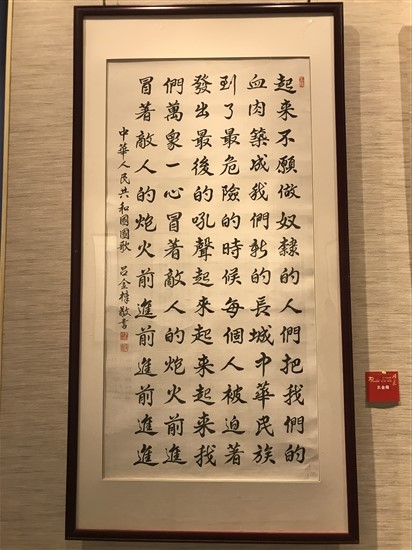 起來不願做奴隸的人們把我們的
血肉築成我們新的長城中華民族
到了最危險的時候每個人被迫著
發出最後的吼聲起來起來起來我
們萬衆一心冒著敵人的炮火前進
冒著敵人的炮火前進前進前進進
中華人民共和國國歌 呂金樟敬書